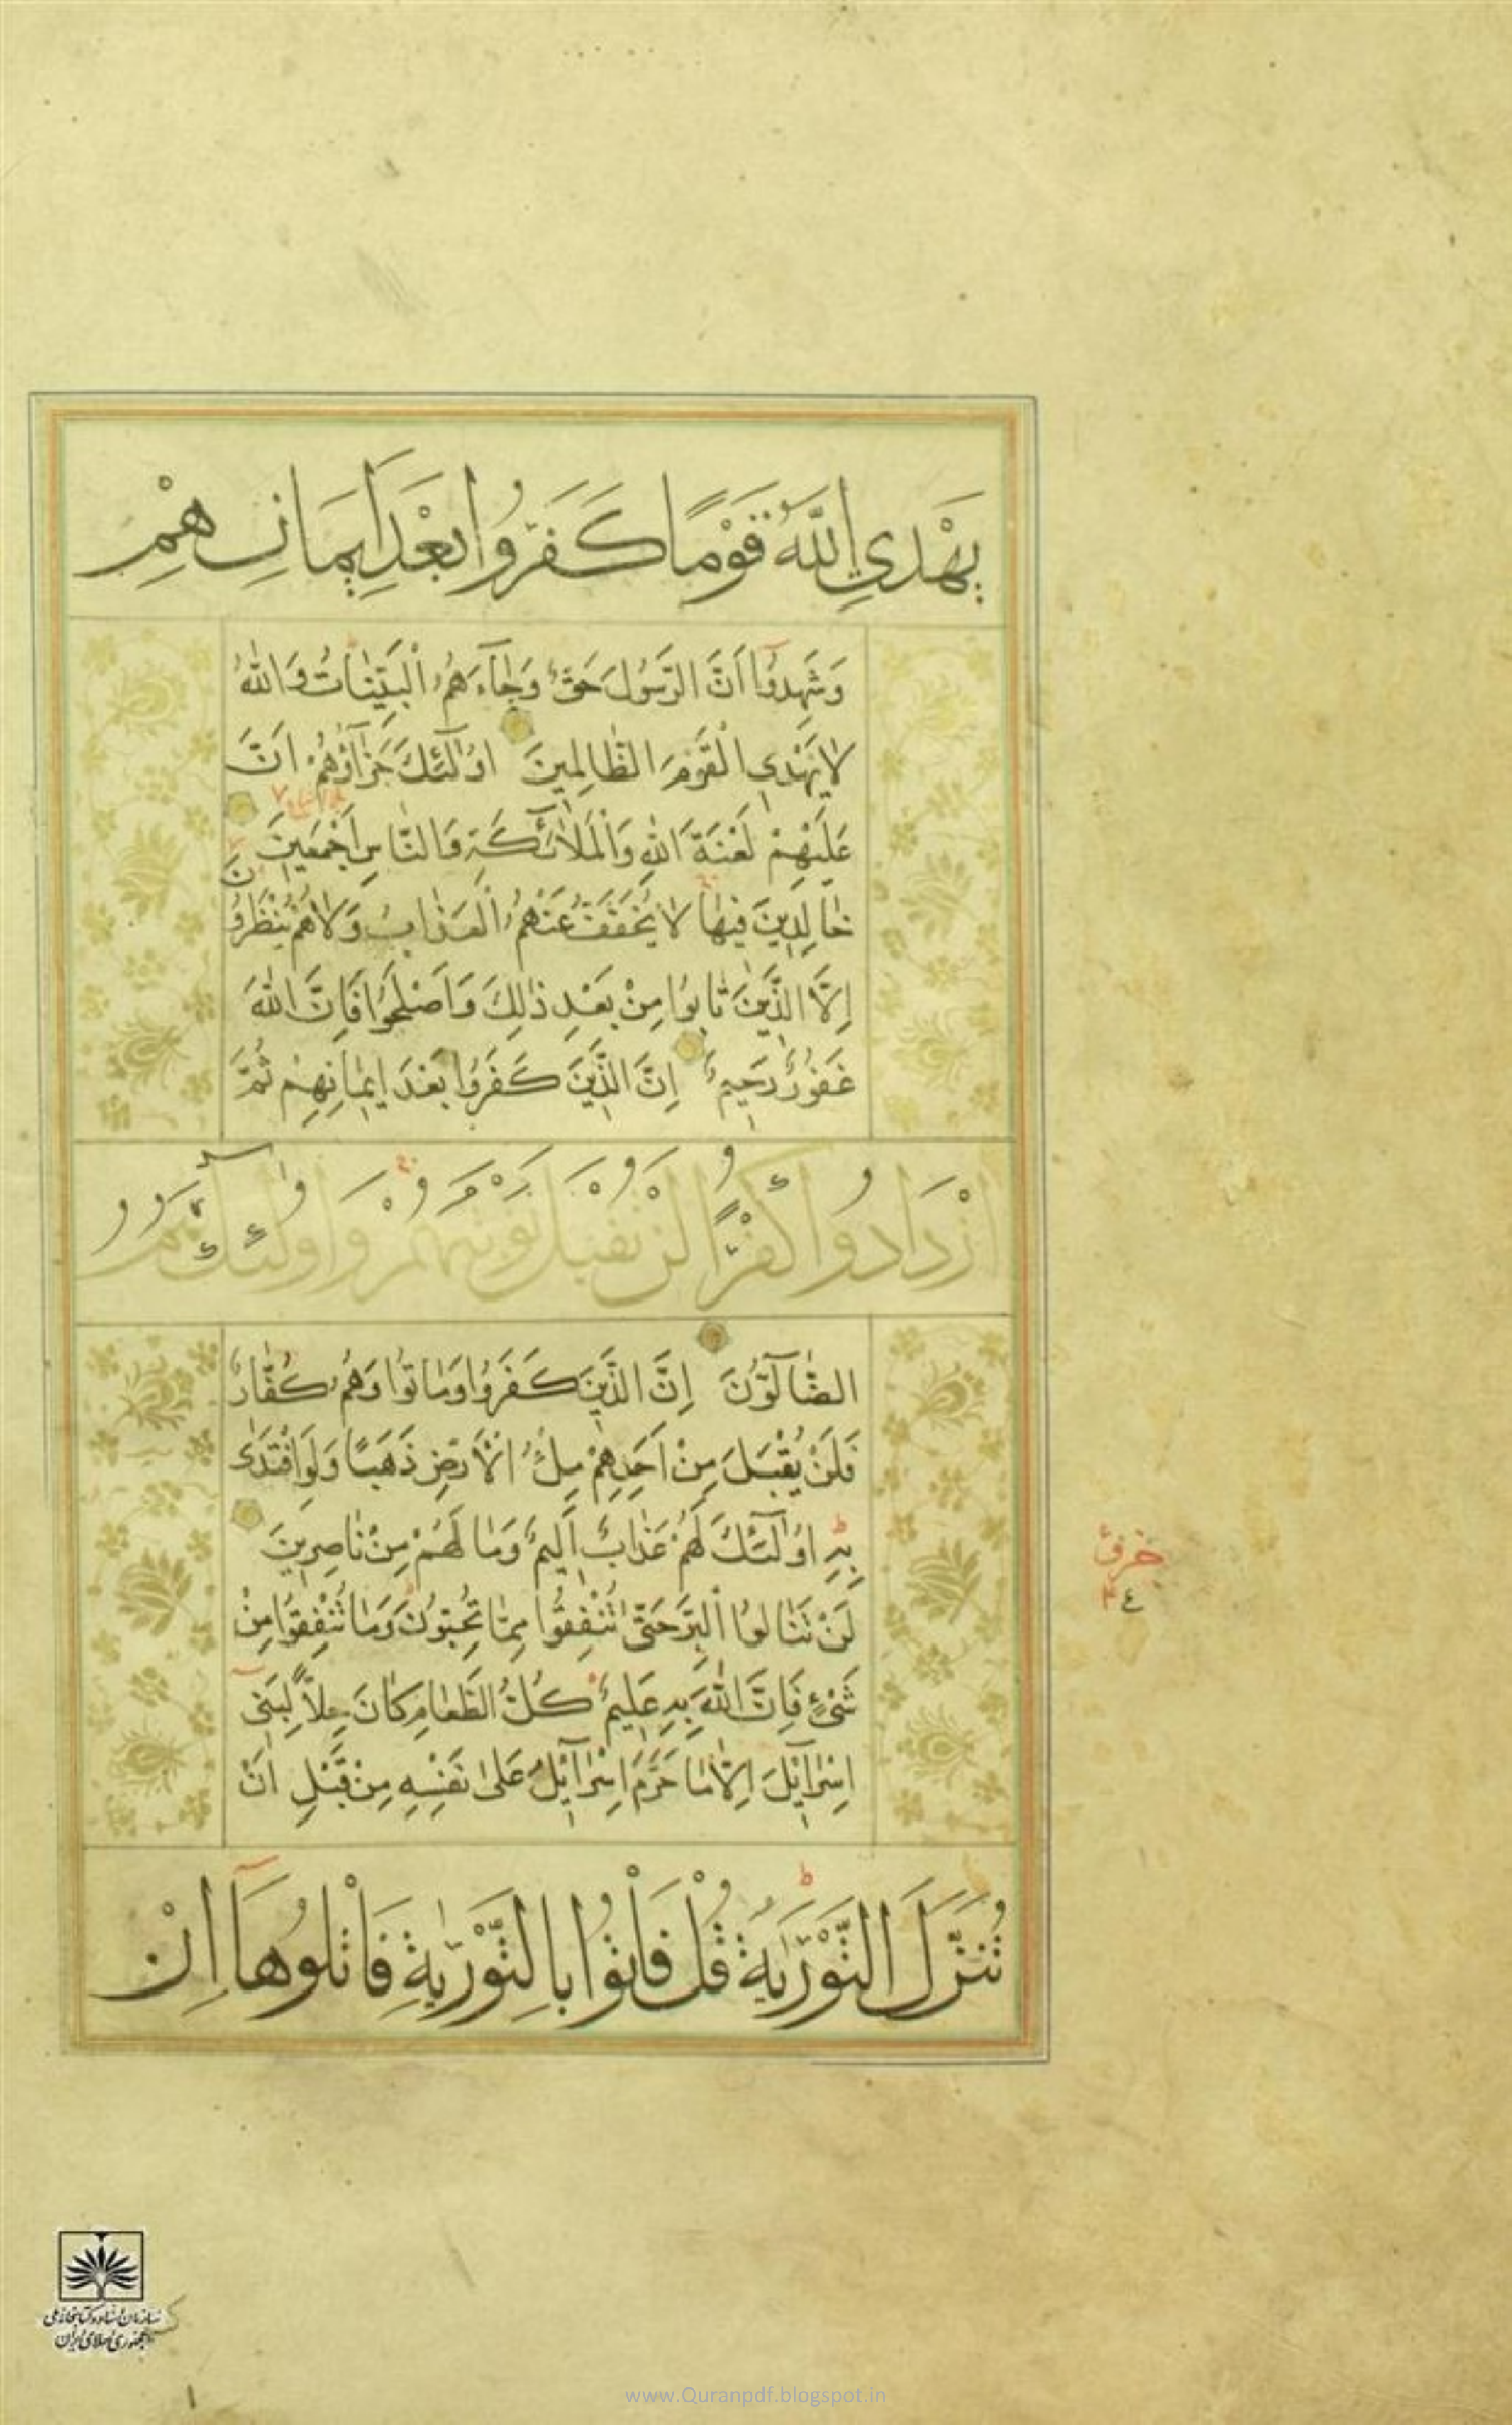 يَهْدِي اللَّهُ قَوْمًا كَفَرُوا بَعْدَ إِيمَانِهِمْ
وَشَهِدُوا أَنَّ الرَّسُولَ حَقٌّ وَجَاءَهُمُ الْبَيِّنَاتُ وَاللَّهُ
لَا يَهْدِي الْقَوْمَ الظَّالِمِينَ أُولَٰئِكَ جَزَاؤُهُمْ أَنَّ
عَلَيْهِمْ لَعْنَةَ اللَّهِ وَالْمَلَائِكَةِ وَالنَّاسِ أَجْمَعِينَ
خَالِدِينَ فِيهَا لَا يُخَفَّفُ عَنْهُمُ الْعَذَابُ وَلَا هُمْ يُنْظَرُونَ
إِلَّا الَّذِينَ تَابُوا مِنْ بَعْدِ ذَٰلِكَ وَأَصْلَحُوا فَإِنَّ اللَّهَ
غَفُورٌ رَحِيمٌ إِنَّ الَّذِينَ كَفَرُوا بَعْدَ إِيمَانِهِمْ ثُمَّ
ازْدَادُوا كُفْرًا لَنْ تُقْبَلَ تَوْبَتُهُمْ وَأُولَٰئِكَ هُمُ
الضَّالُّونَ إِنَّ الَّذِينَ كَفَرُوا وَمَاتُوا وَهُمْ كُفَّارٌ
فَلَنْ يُقْبَلَ مِنْ أَحَدِهِمْ مِلْءُ الْأَرْضِ ذَهَبًا وَلَوِ افْتَدَىٰ
بِهِ أُولَٰئِكَ لَهُمْ عَذَابٌ أَلِيمٌ وَمَا لَهُمْ مِنْ نَاصِرِينَ
لَنْ تَنَالُوا الْبِرَّ حَتَّىٰ تُنْفِقُوا مِمَّا تُحِبُّونَ وَمَا تُنْفِقُوا مِنْ
شَيْءٍ فَإِنَّ اللَّهَ بِهِ عَلِيمٌ كُلُّ الطَّعَامِ كَانَ حِلًّا لِبَنِي
إِسْرَائِيلَ إِلَّا مَا حَرَّمَ إِسْرَائِيلُ عَلَىٰ نَفْسِهِ مِنْ قَبْلِ أَنْ
تُنَزَّلَ التَّوْرَيٰةُ قُلْ فَأْتُوا بِالتَّوْرَيٰةِ فَاتْلُوهَا إِنْ
سازمان اسناد و کتابخانه ملی
جمهوری اسلامی ایران
www.Quranpdf.blogspot.in